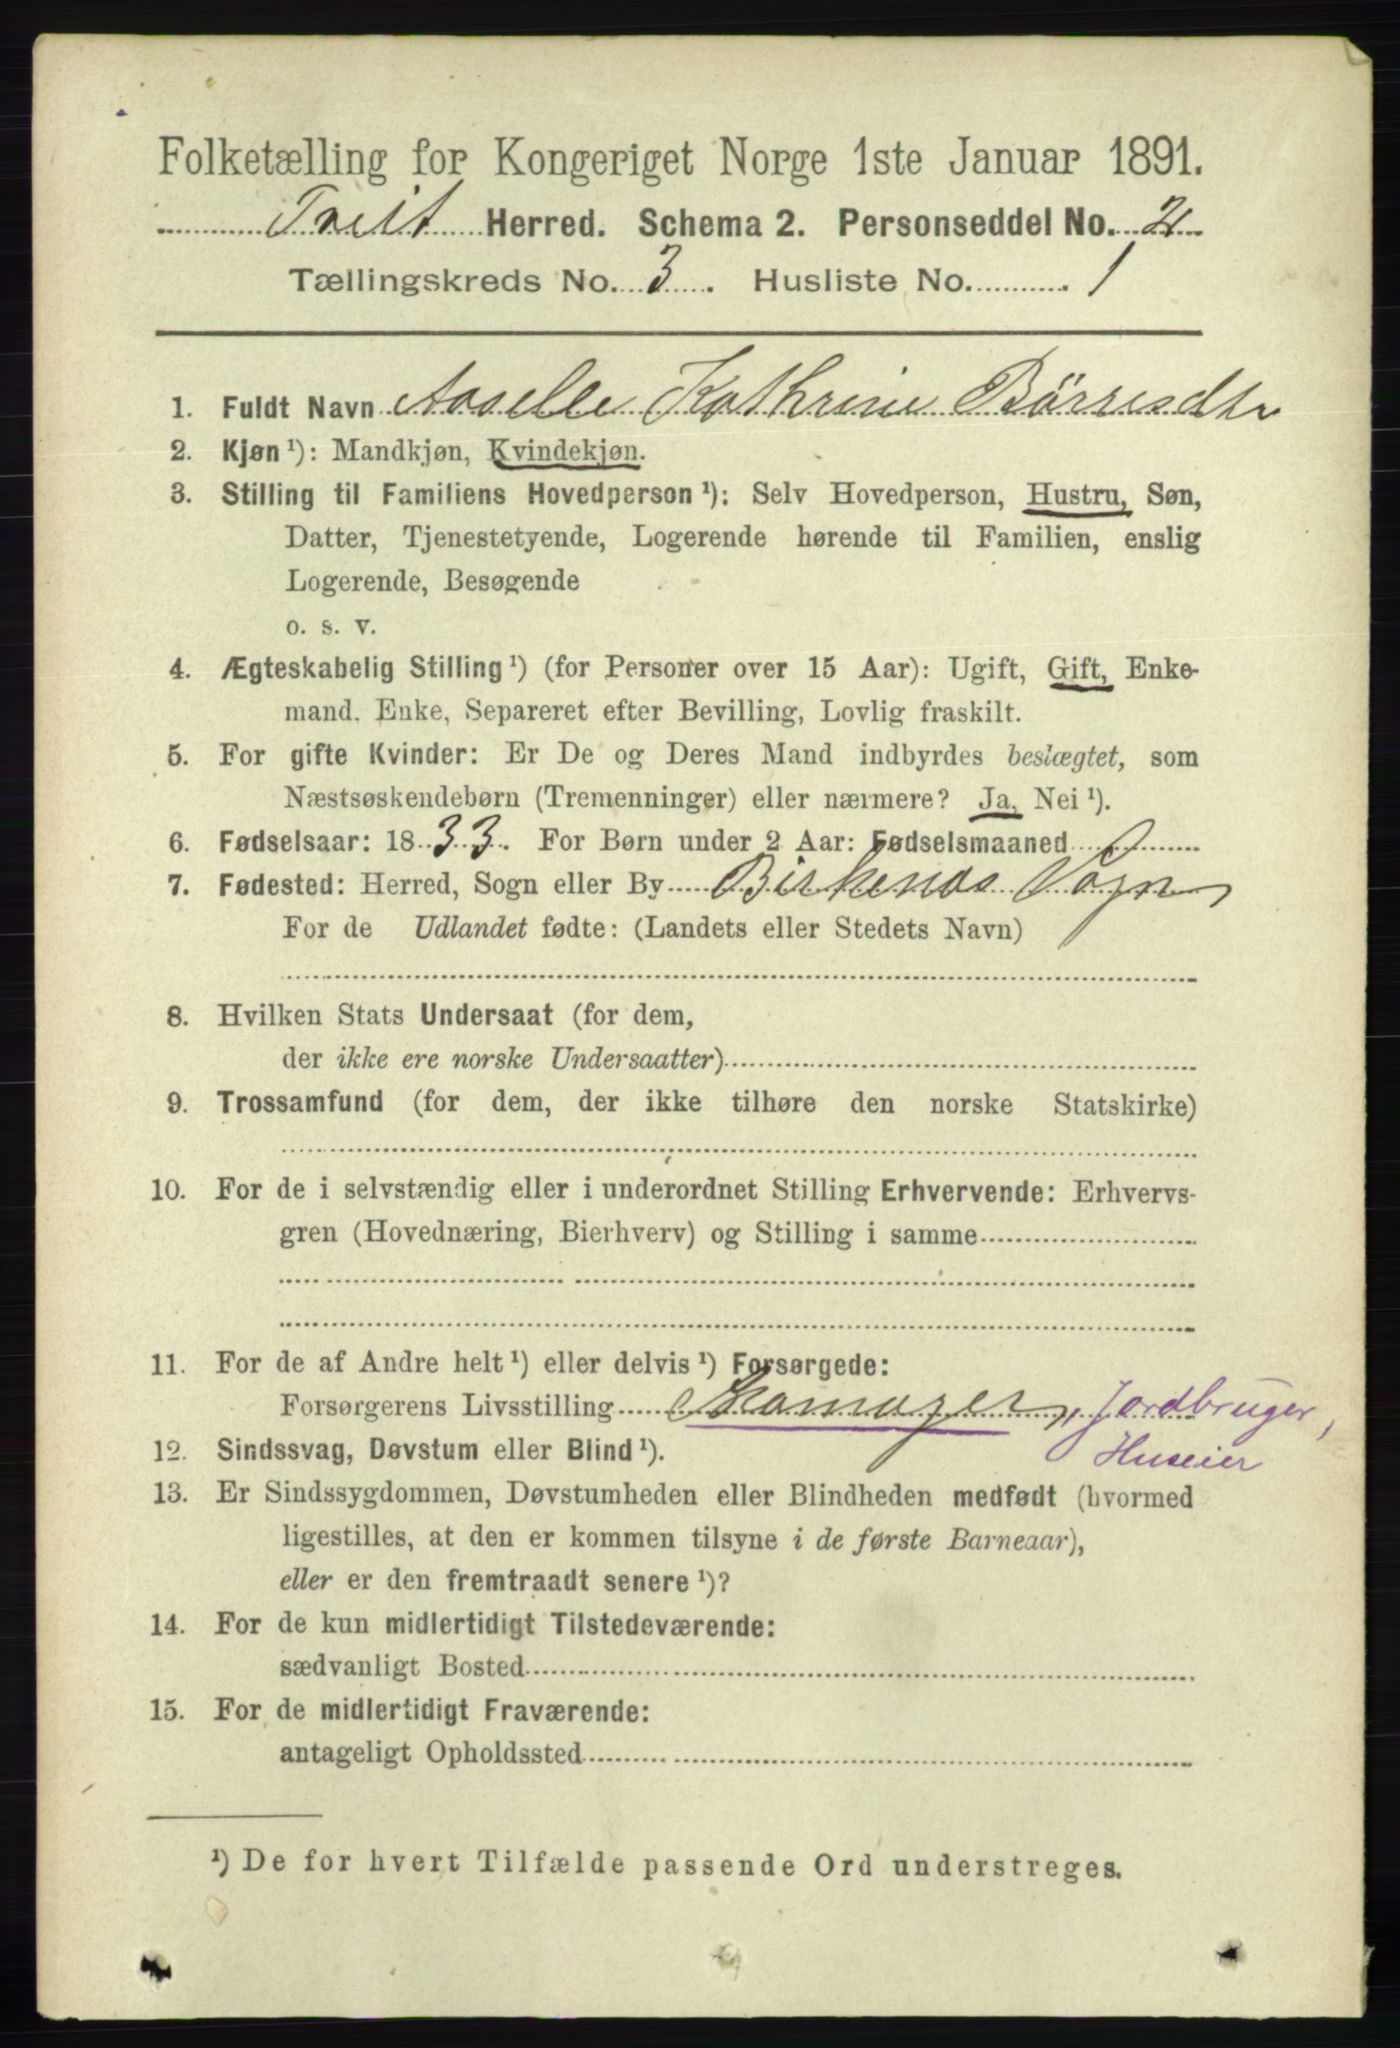 Folketælling for Kongeriget Norge 1ste Januar 1891.
Tveit Herred. Schema 2. Personseddel No. 2
Tællingskreds No. 3. Husliste No. 1
1. Fuldt Navn Aaselle Kathrine Börresdtr
2. Kjøn ¹): Mandkjøn, Kvindekjøn.
3. Stilling til Familiens Hovedperson ¹): Selv Hovedperson, Hustru, Søn,
Datter, Tjenestetyende, Logerende hørende til Familien, enslig
Logerende, Besøgende
o. s. v.
4. Ægteskabelig Stilling ¹) (for Personer over 15 Aar): Ugift, Gift, Enke-
mand, Enke, Separeret efter Bevilling, Lovlig fraskilt.
5. For gifte Kvinder: Er De og Deres Mand indbyrdes beslægtet, som
Næstsøskendebørn (Tremenninger) eller nærmere? Ja, Nei ¹).
6. Fødselsaar: 1833. For Børn under 2 Aar: Fødselsmaaned
7. Fødested: Herred, Sogn eller By Birkenæs Sogn
For de Udlandet fødte: (Landets eller Stedets Navn)
8. Hvilken Stats Undersaat (for dem,
der ikke ere norske Undersaatter)
9. Trossamfund (for dem, der ikke tilhøre den norske Statskirke)
10. For de i selvstændig eller i underordnet Stilling Erhvervende: Erhvervs-
gren (Hovednæring, Bierhverv) og Stilling i samme
11. For de af Andre helt ¹) eller delvis ¹) Forsørgede:
Forsørgerens Livsstilling Skomager, Jordbruger,
Huseier
12. Sindssvag, Døvstum eller Blind ¹).
13. Er Sindssygdommen, Døvstumheden eller Blindheden medfødt (hvormed
ligestilles, at den er kommen tilsyne i de første Barneaar),
eller er den fremtraadt senere ¹)?
14. For de kun midlertidigt Tilstedeværende:
sædvanligt Bosted
15. For de midlertidigt Fraværende:
antageligt Opholdssted
¹) De for hvert Tilfælde passende Ord understreges.